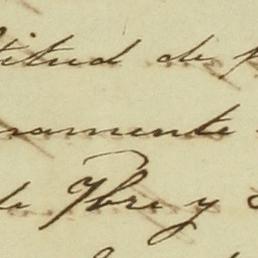 titud de p
ramente
de Xbre y